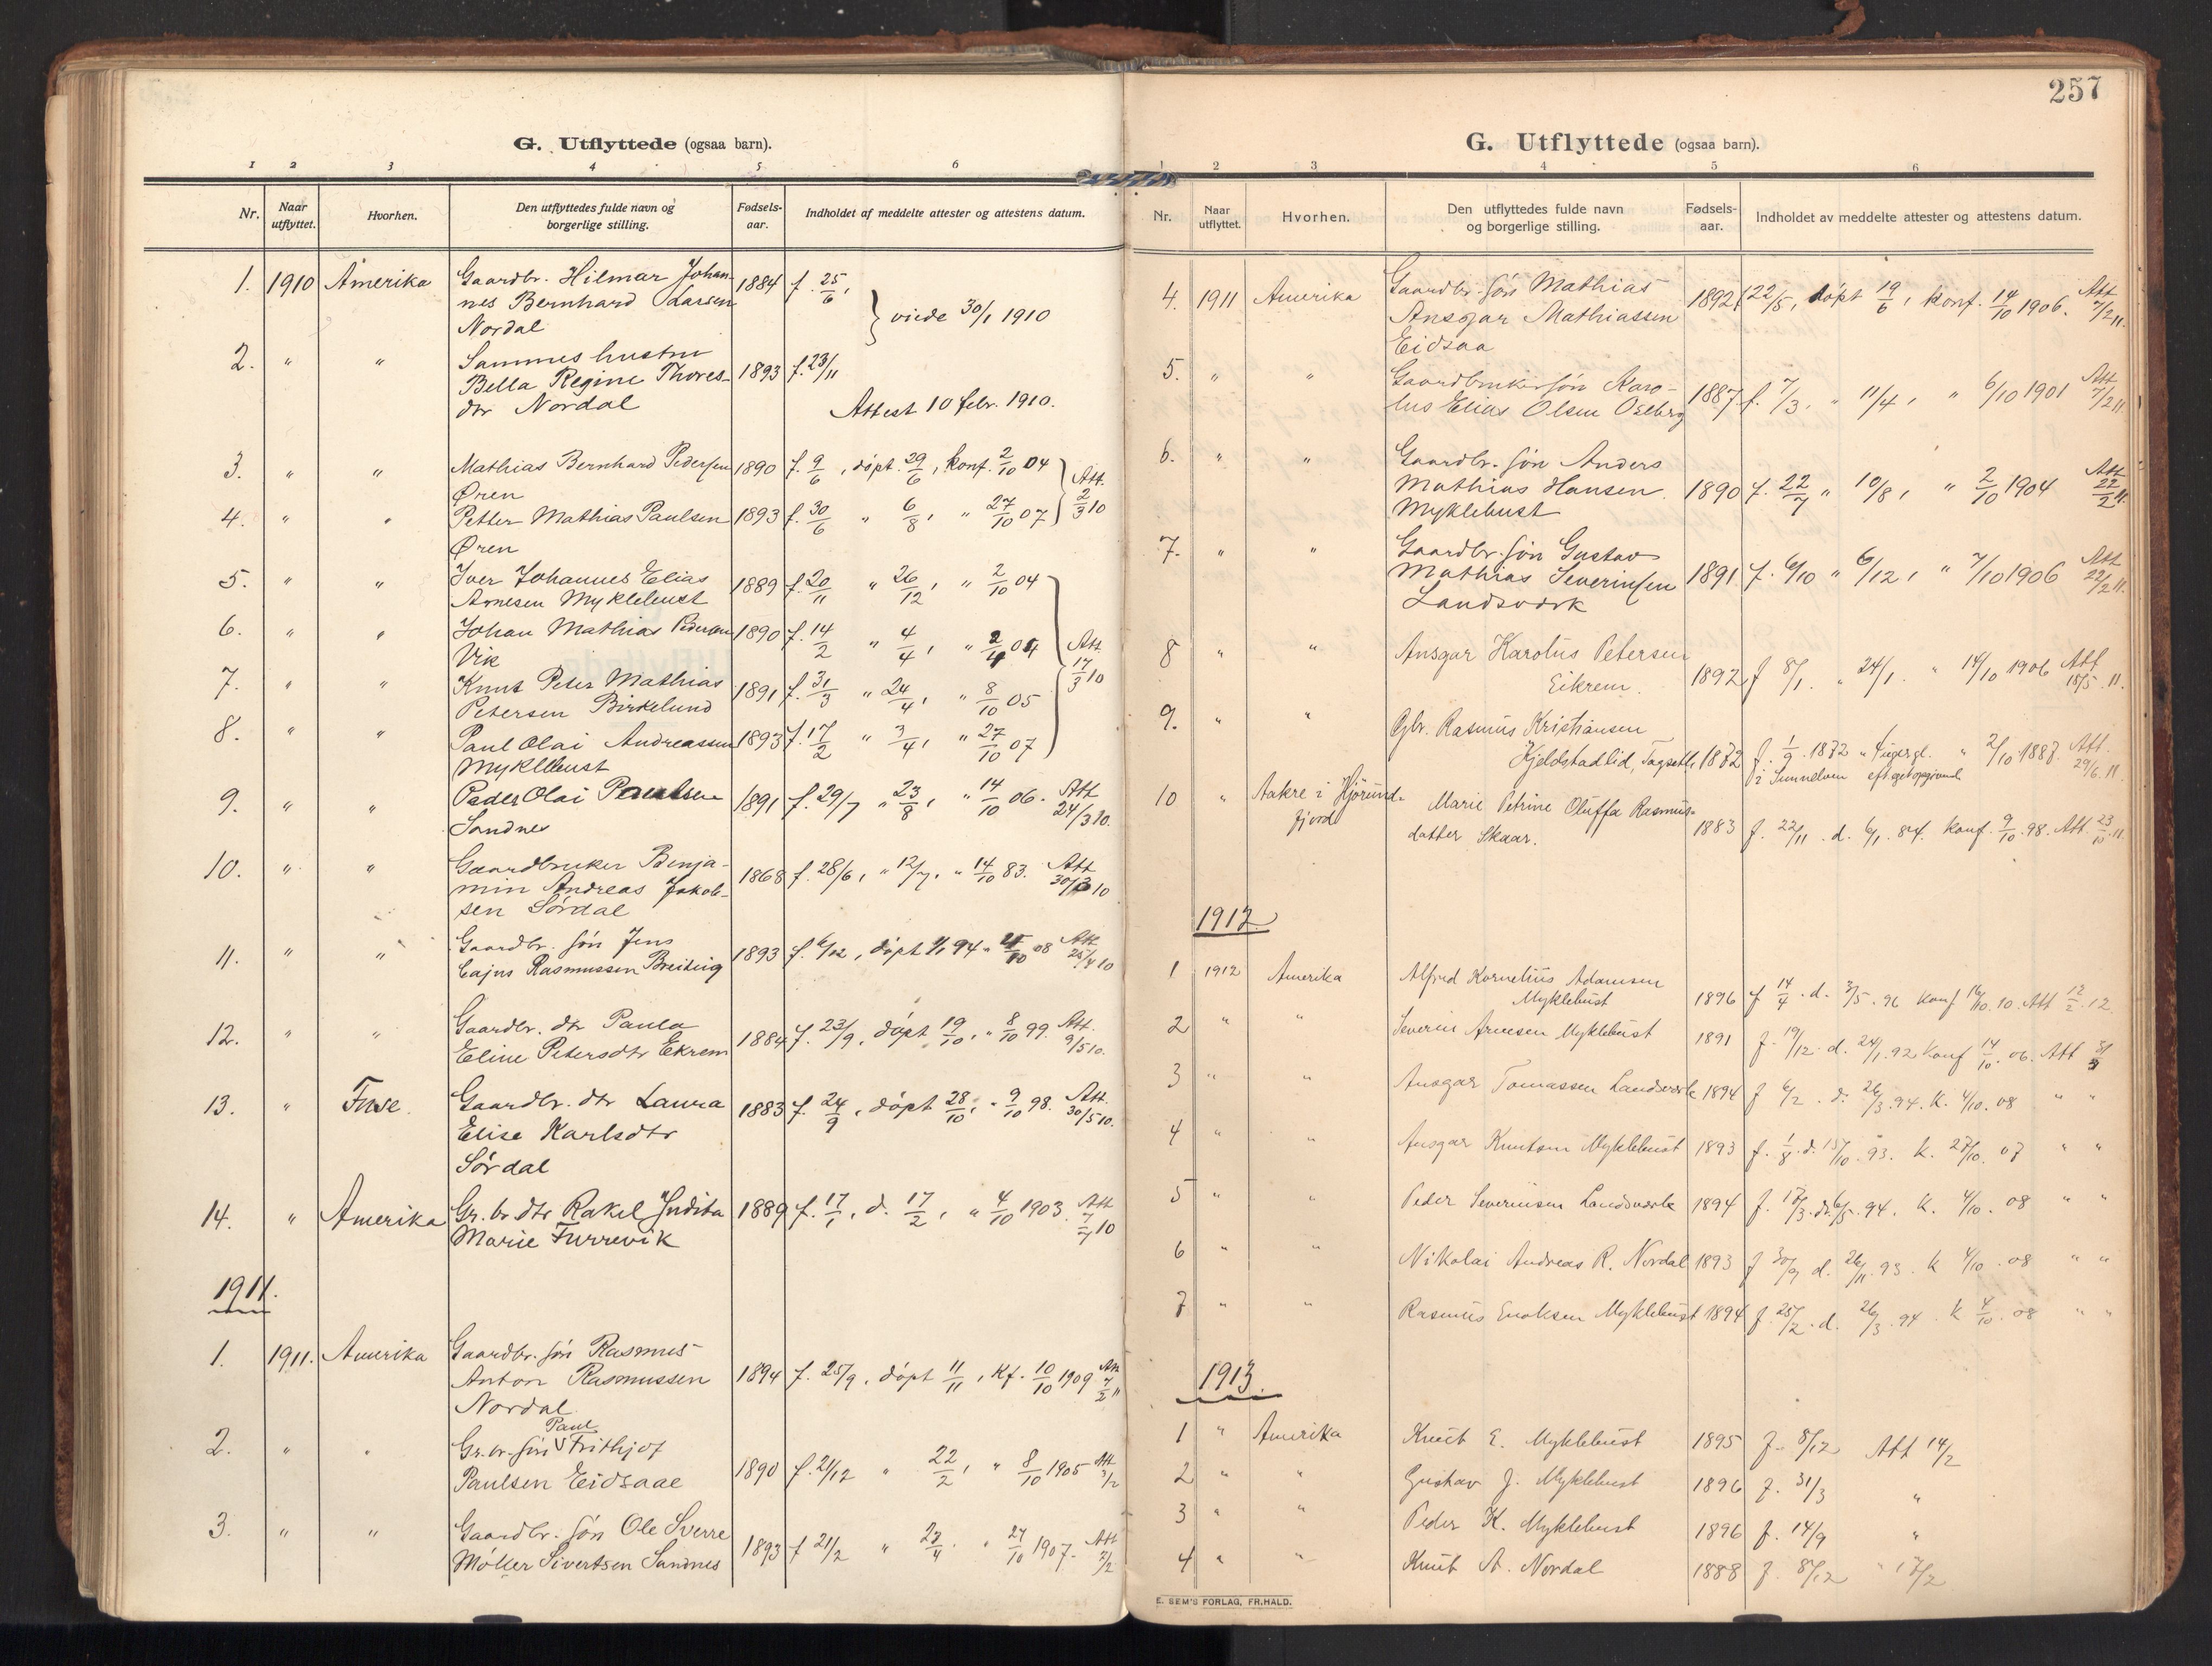 G. Utflyttede (ogsaa barn).
1 2 3 4 5 6
Nr. Naar utflyttet. Hvorhen. Den utflyttedes fulde navn og borgerlige stilling. Fødsels-aar. Indholdet af meddelte attester og attestens datum.
1. 1910 Amerika Gaardbr. Hilmar Johan- 1884 f. 25/6,
nes Bernhard Larsen } viede 30/1 1910
Nordal
2. " " Sammes hustru
Bella Regine Thores- 1893 f. 23/11
dtr Nordal Attest 10 febr. 1910.
3. " " Mathias Bernhard Pedersen 1890 f. 9/6, døpt. 29/6, konf. 2/10 04
Øren } Att. 2/3 10
4. " " Petter Mathias Paulsen 1893 f. 30/6 " 6/8, " 27/10 07
Øren
5. " " Iver Johannes Elias 1889 f. 20/11 " 26/12, " 2/10 04
Arnesen Myklebust
6. " " Johan Mathias Pedersen 1890 f. 14/2 " 4/4, " 04
Vik } Att 17/3 10
7. " " Knut Peter Mathias 1891 f. 31/3 " 24/4, " 8/10 05
Petersen Birkelund
8. " " Paul Olai Andreassen 1893 f. 17/2 " 3/4, " 27/10 07
Myklebust
9. " " Peder Olai Paulsen 1891 f. 29/7 " 23/8, " 14/10 06. Att 24/3 10.
Sandnes
10. " " Gaardbruker Benja- 1868 f. 28/6, " 12/7, " 14/10 83. Att 10
min Andreas Jakob-
sen Sørdal
11. " " Gaardbr. søn Jens 1893 f. 6/12, døpt 1/1 94 " 08 Att 25/4 10
Cajus Rasmussen Breiteig
12. " " Gaardbr. dtr Paula 1884 f. 23/9, døpt 19/10, " 8/10 99. Att. 9/5 10.
Eline Petersdtr Ekrem
13. " Gaardbr. dtr Laura 1883 f. 24/9, døpt 28/10, " 9/10 98. Att. 30/5 10.
Elise Karlsdtr
Sørdal
14. " Amerika Gr. br. dtr Rakel Indita 1889 f. 17/1, d. 17/2, " 4/10 1903. Att 7/7 10
Marie Furrevik
1911.
1. 1911. Amerika Gaardbr. søn Rasmus 1894 f. 25/9, døpt 11/11, Kf. 10/10 1909 Att 7/2 11
Anton Rasmussen
Nordal
2. " " Gr. br. søn Paul Frithjof
Paulsen Eidsaae 1890 f. 21/12 " 22/2, " 8/10 1905 Att 3/2
3. " " Gaardbr. søn Ole Sverre
Møller Sivertsen Sandnes 1893 f 21/2 " 23/4. " 27/10 1907. Att 7/2
257
G. Utflyttede (ogsaa barn).
1 2 3 4 5 6
Nr. Naar utflyttet. Hvorhen. Den utflyttedes fulde navn og borgerlige stilling. Fødsels-aar. Indholdet av meddelte attester og attestens datum.
4. 1911 Amerika Gaardbr. søn Mathias 1892 f 22/5, døpt 19/6, konf. 14/10 1906. Att 7/2 11.
Ansgar Mathiassen
Eidsaa
5. " " Gaardbrukersøn Karo- 1887 f. 7/3. " 11/4, " 6/10 1901 Att 7/2 11
lus Elias Olsen Oseberg
6. " " Gaardbr. søn Anders
Mathias Hansen 1890 f. 22/7 " 10/8, " 2/10 1904 Att 22/2 11.
Myklebust
7. " " Gaardbr. søn Gustav
Mathias Severinsen 1891 f. 6/10 " 6/12, " 7/10 1906 Att 22/2 11.
Landsverk
8 " " Ansgar Karolus Petersen
Eikrem. 1892 f 8/1. " 24/1. " 14/10 1906 Att 18/5. 11.
9. " " Gbr. Rasmus Kristiansen
Kjeldstadlid, 1872 f. 1/9. 1872 " " 2/10 1887. Att. 29/6. 11.
i Sunnelven eft. eget opgivende
10 " Aakre i Hjørund- Marie Petrine Oluffa Rasmus-
fjord datter Skaar. 1883 f. 22/11. d. 6/1. 84. konf. 9/10. 98. Att. 23/10. 11.
1912
1 1912 Amerika Alfred Kornelius Adamsen
Myklebust 1896 f 14/4. d. 3/5. 96 Konf 16/10. 10. Att 12/2. 12.
2 " " Severin Arnesen Myklebust 1891 f. 19/12. d. 24/1. 92. Konf 14/10. 06. Att
3 " " Ansgar Tomassen Landsverk 1894 f 6/2. d. 26/3. 94. K. 4/10. 08 " "
4 " " Ansgar Knutsen Myklebust 1893 f. 1/8. d. 15/10. 93. K. 27/10. 07 " "
5 " " Peder Severinsen Landsverk 1894 f. 17/3. d. 6/5. 94. K. 4/10. 08 " "
6 " " Nikolai Andreas R. Nordal 1893 f 30/9 d. 26/11. 93. K 4/10. 08 " "
7 " " Rasmus Enoksen Myklebust 1894 f. 25/2. d. 26/3. 94. K 4/10. 08 " "
1913.
1 " Amerika Knut E. Myklebust 1895 f. 8/12 Att 14/2
2 " " Gustav J. Myklebust 1896 f. 31/3 "
3 " " Peder K. Myklebust 1896 f. 14/9 "
4 " " Knut A. Nordal 1888 f. 8/12 " 17/2
E. SEM'S FORLAG, FR.HALD.